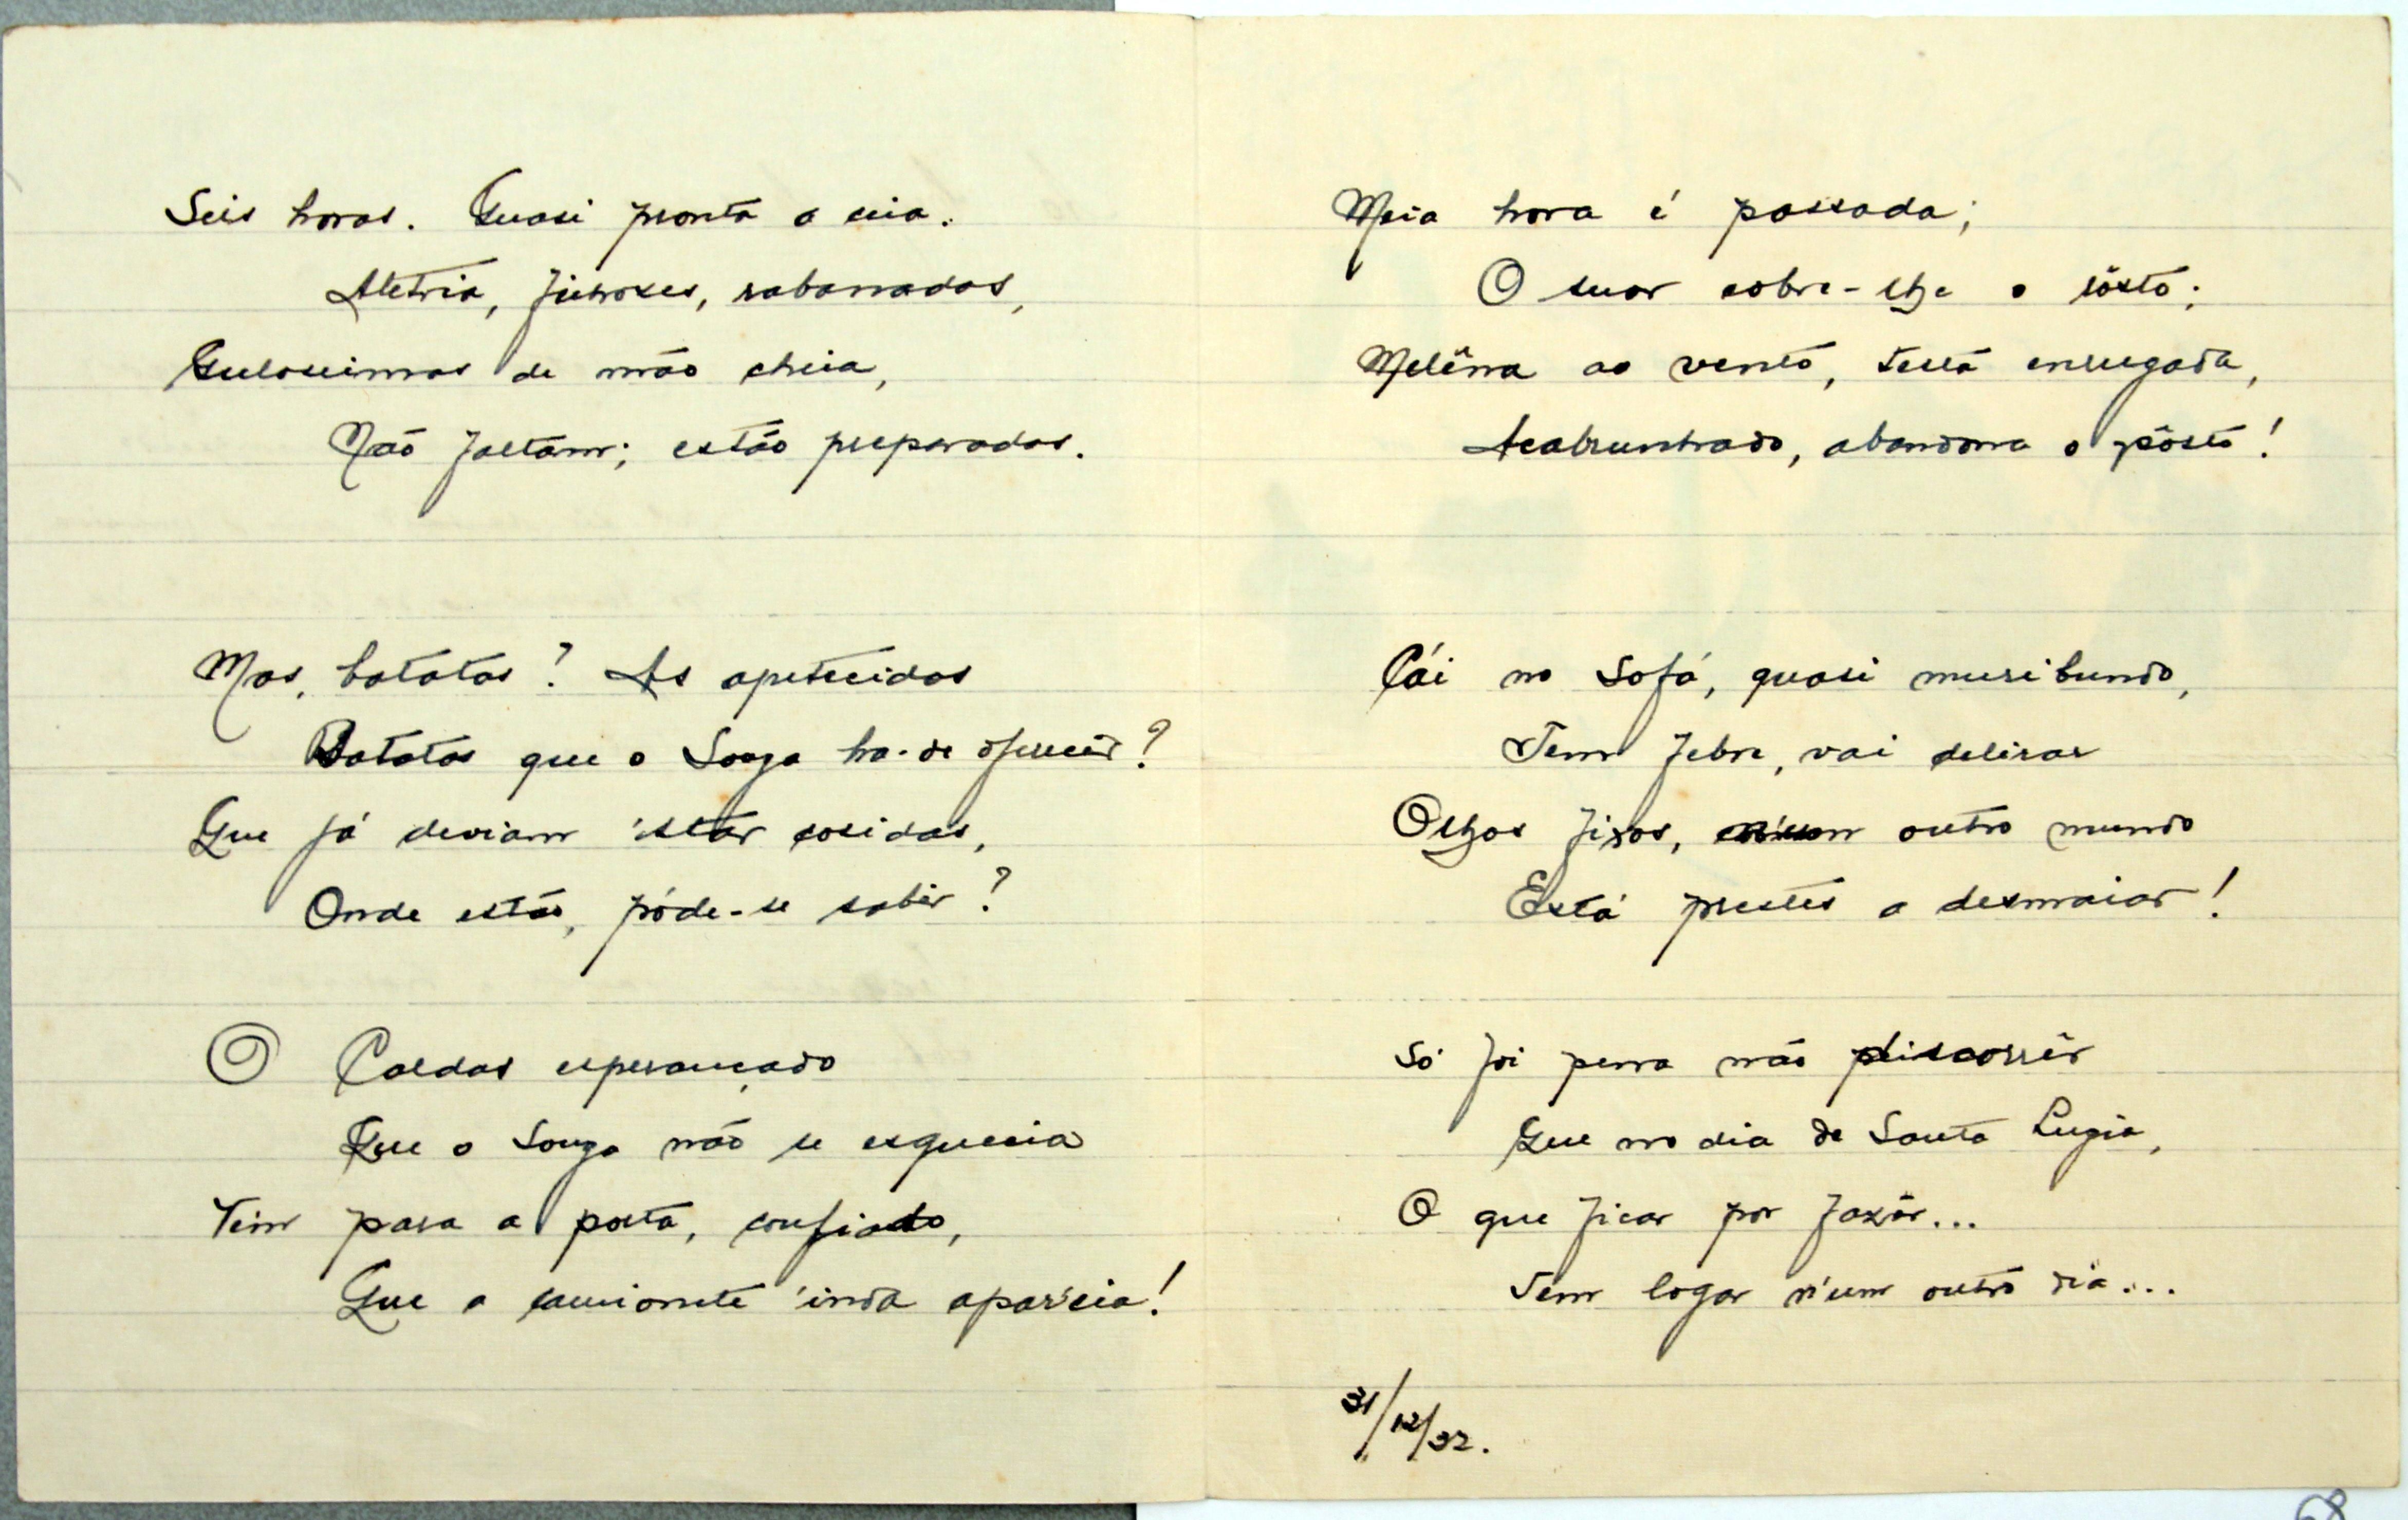 Seis horas. Quasi pronta a ceia.
Aletria, fichoses, rabanadas,
Guloseimas de mão cheia,
Não faltam; estão preparadas.
Mas, batatas? As apetecidas
Batatas que o Souza ha-de ofrecêr?
Que já deviam 'star cosidas,
Onde estão, póde-se sabêr?
O Caldas esperançado
Que o Souza não se esquecia
Vem para a porta, confiado,
Que a camionete 'inda apar'cia!
Meia hora é passada;
O suor cobre-lhe o rôsto;
Melêna ao vento, testa enrugada,
Acabrunhado, abandona o pôsto!
Cái no Sofá, quasi muribundo,
Tem febre, vai delirar
Olhos fixos, n'um outro mundo
Está prestes a desmaiar!
Só foi pena não discorrêr
Que no dia de Santa Luzia,
O que ficar por fazêr...
Tem logar n'um outro dia...
31/12/32.
68